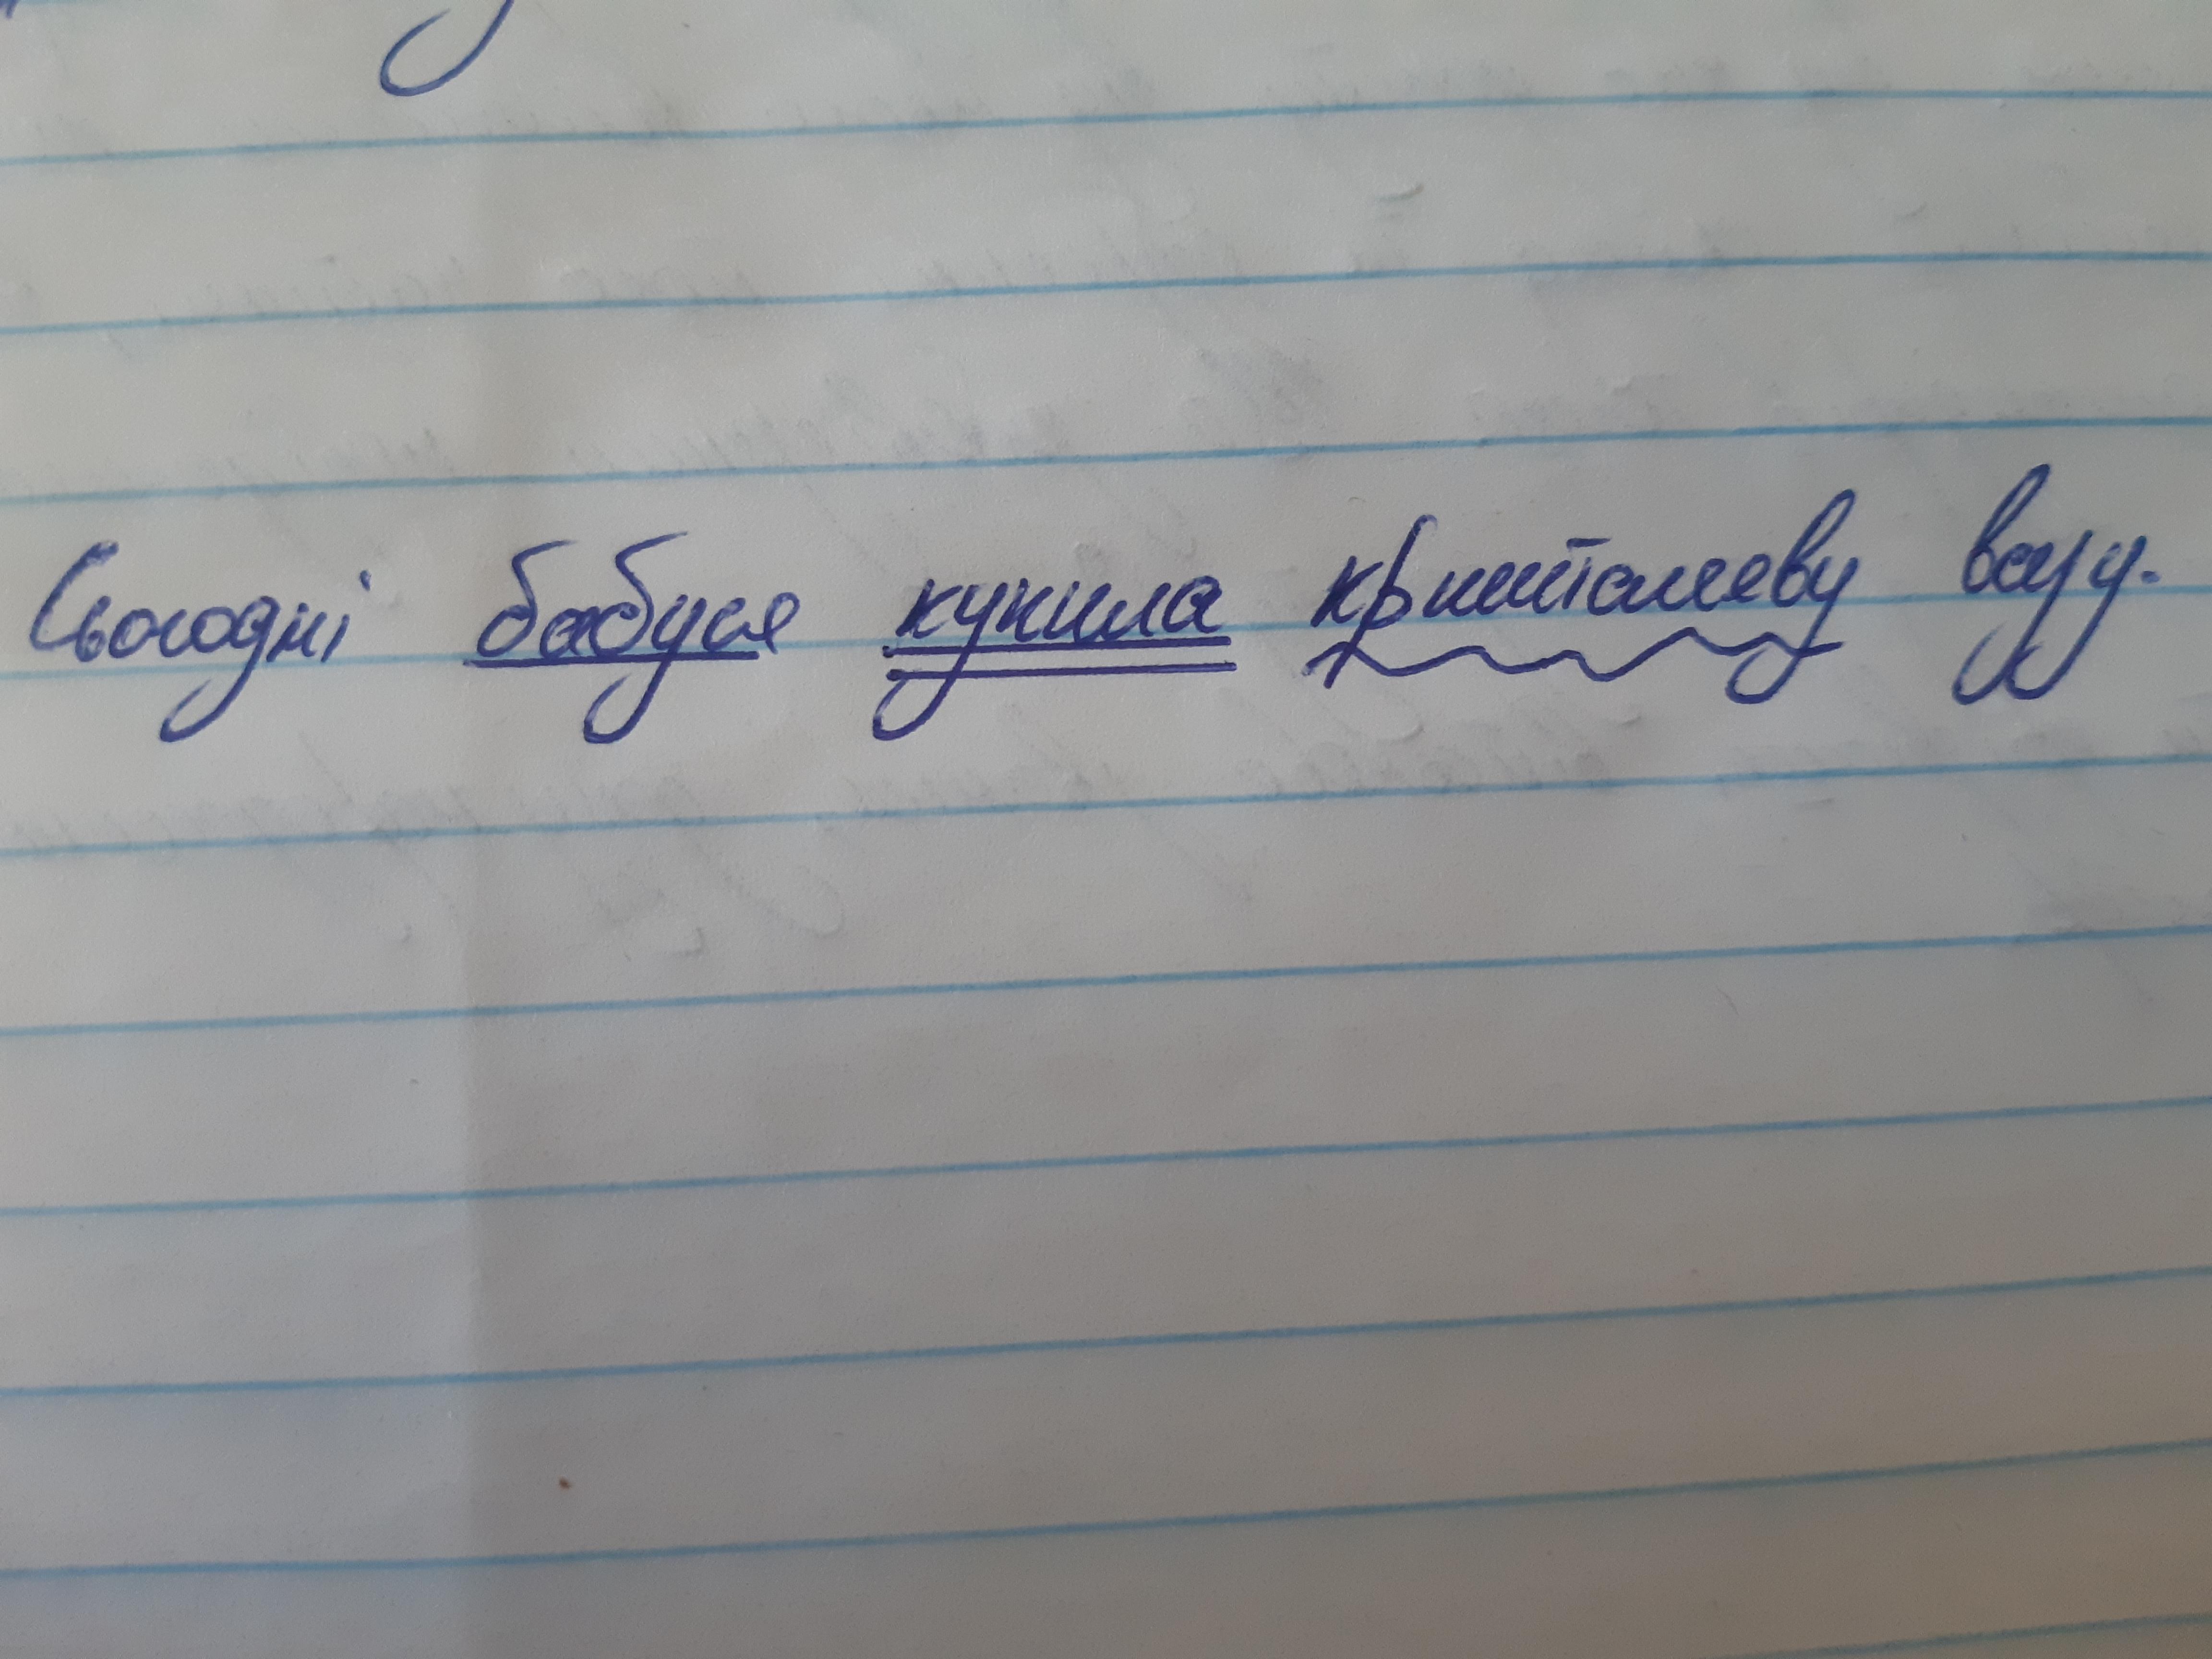 Сьогодні бабуся купила кришталеву вазу.